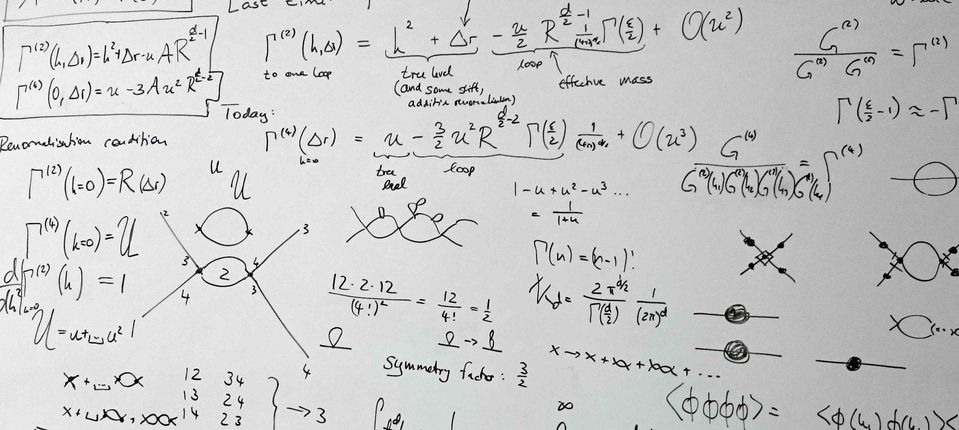 Last time:
Γ^(2)(k,Δr) = k² + Δr - uAR^(d/2-1)
Γ^(4)(0,Δr) = u - 3Au²R^(d/2-2)
Γ^(2)(k,Δr) = k² + Δr - u/2 R^(d/2-1) 1/(4π)^(d/2) Γ(ε/2) + O(u²)
to one loop
tree level
(and some shift,
additive renormalisation)
loop
effective mass
G^(2)/(G^(2) G^(2)) = Γ^(2)
Γ(ε/2-1) ≈ -Γ
Today:
Γ^(4)(Δr) = u - 3/2 u²R^(d/2-2) Γ(ε/2) 1/(4π)^(d/2) + O(u³)
k=0
tree level
loop
G^(4)/(G^(2)(k₁)G^(2)(k₂)G^(2)(k₃)G^(2)(k₄)) = Γ^(4)
Renormalisation condition
Γ^(2)(k=0) = R(Δr)
Γ^(4)(k=0) = U
d/dk² Γ^(2)(k) = 1
k=0
U = u + u²
u U
2 3
3 2 4
4 3
1 4
1-u+u²-u³...
= 1/(1+u)
Γ(n) = (n-1)!
K_d = 2π^(d/2)/Γ(d/2) 1/(2π)^d
12·2·12/(4!)² = 12/4! = 1/2
Symmetry factor: 3/2
12 34
13 24
14 23
→ 3
∞
<φφφφ> =
<φ(k₁)φ(k₂)><